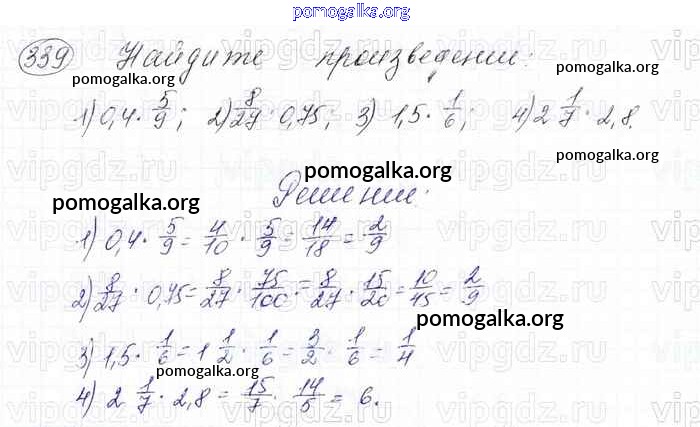 pomogalka.org
339 Найдите произведении:
pomogalka.org pomogalka.org
1) 0,4 · 5/9; 2) 8/27 · 0,75; 3) 1,5 · 1/6; 4) 2 1/7 · 2,8.
pomogalka.org
pomogalka.org
Решении.
pomogalka.org
1) 0,4 · 5/9 = 4/10 · 5/9 = 14/18 = 2/9
2) 8/27 · 0,75 = 8/27 · 75/100 = 8/27 · 15/20 = 10/45 = 2/9
pomogalka.org
3) 1,5 · 1/6 = 1 1/2 · 1/6 = 3/2 · 1/6 = 1/4
pomogalka.org
4) 2 1/7 · 2,8 = 15/7 · 14/5 = 6.
vipgdz.ru